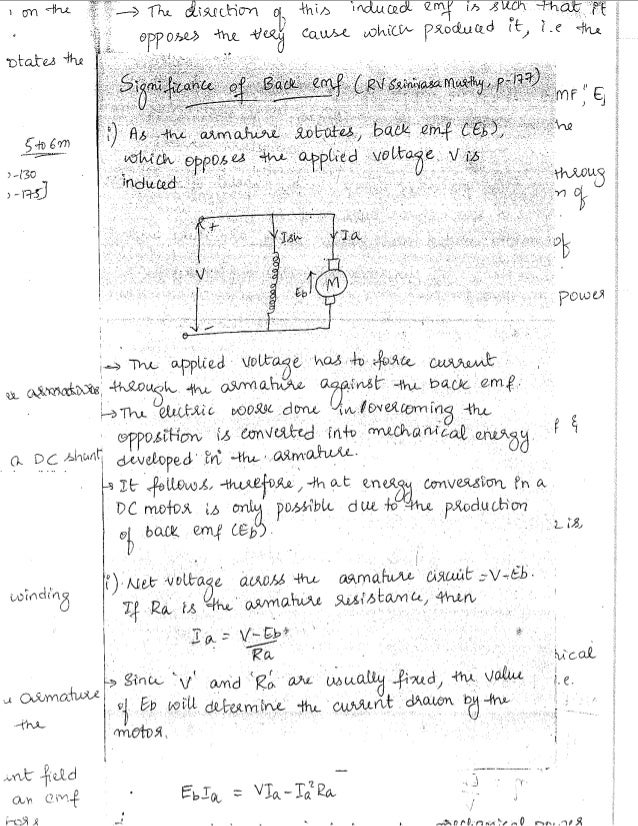 → The direction of this induced emf is such that it
opposes the very cause which produced it, i.e the
Significance of Back emf (RV Srinivasa Murthy, p-177)
i) As the armature rotates, back emf (Eb),
which opposes the applied voltage V is
induced
+
Ish
Ia
V
Eb
M
-
→ The applied voltage has to force current
through the armature against the back emf.
→ The electric work done in overcoming the
opposition is converted into mechanical energy
developed in the armature.
→ It follows, therefore, that energy conversion in a
DC motor is only possible due to the production
of back emf (Eb).
i) Net voltage across the armature circuit = V-Eb.
If Ra is the armature resistance, then
Ia = V-Eb
Ra
→ Since 'V' and 'Ra' are usually fixed, the value
of Eb will determine the current drawn by the
motor.
EbIa = VIa - Ia²Ra
on the
states the
5 to 6m
-130
-175]
armature
a DC shunt
winding
armature
the
field
an emf
MF, E
he
throug
of
of
power
f &
is
rical
i.e.